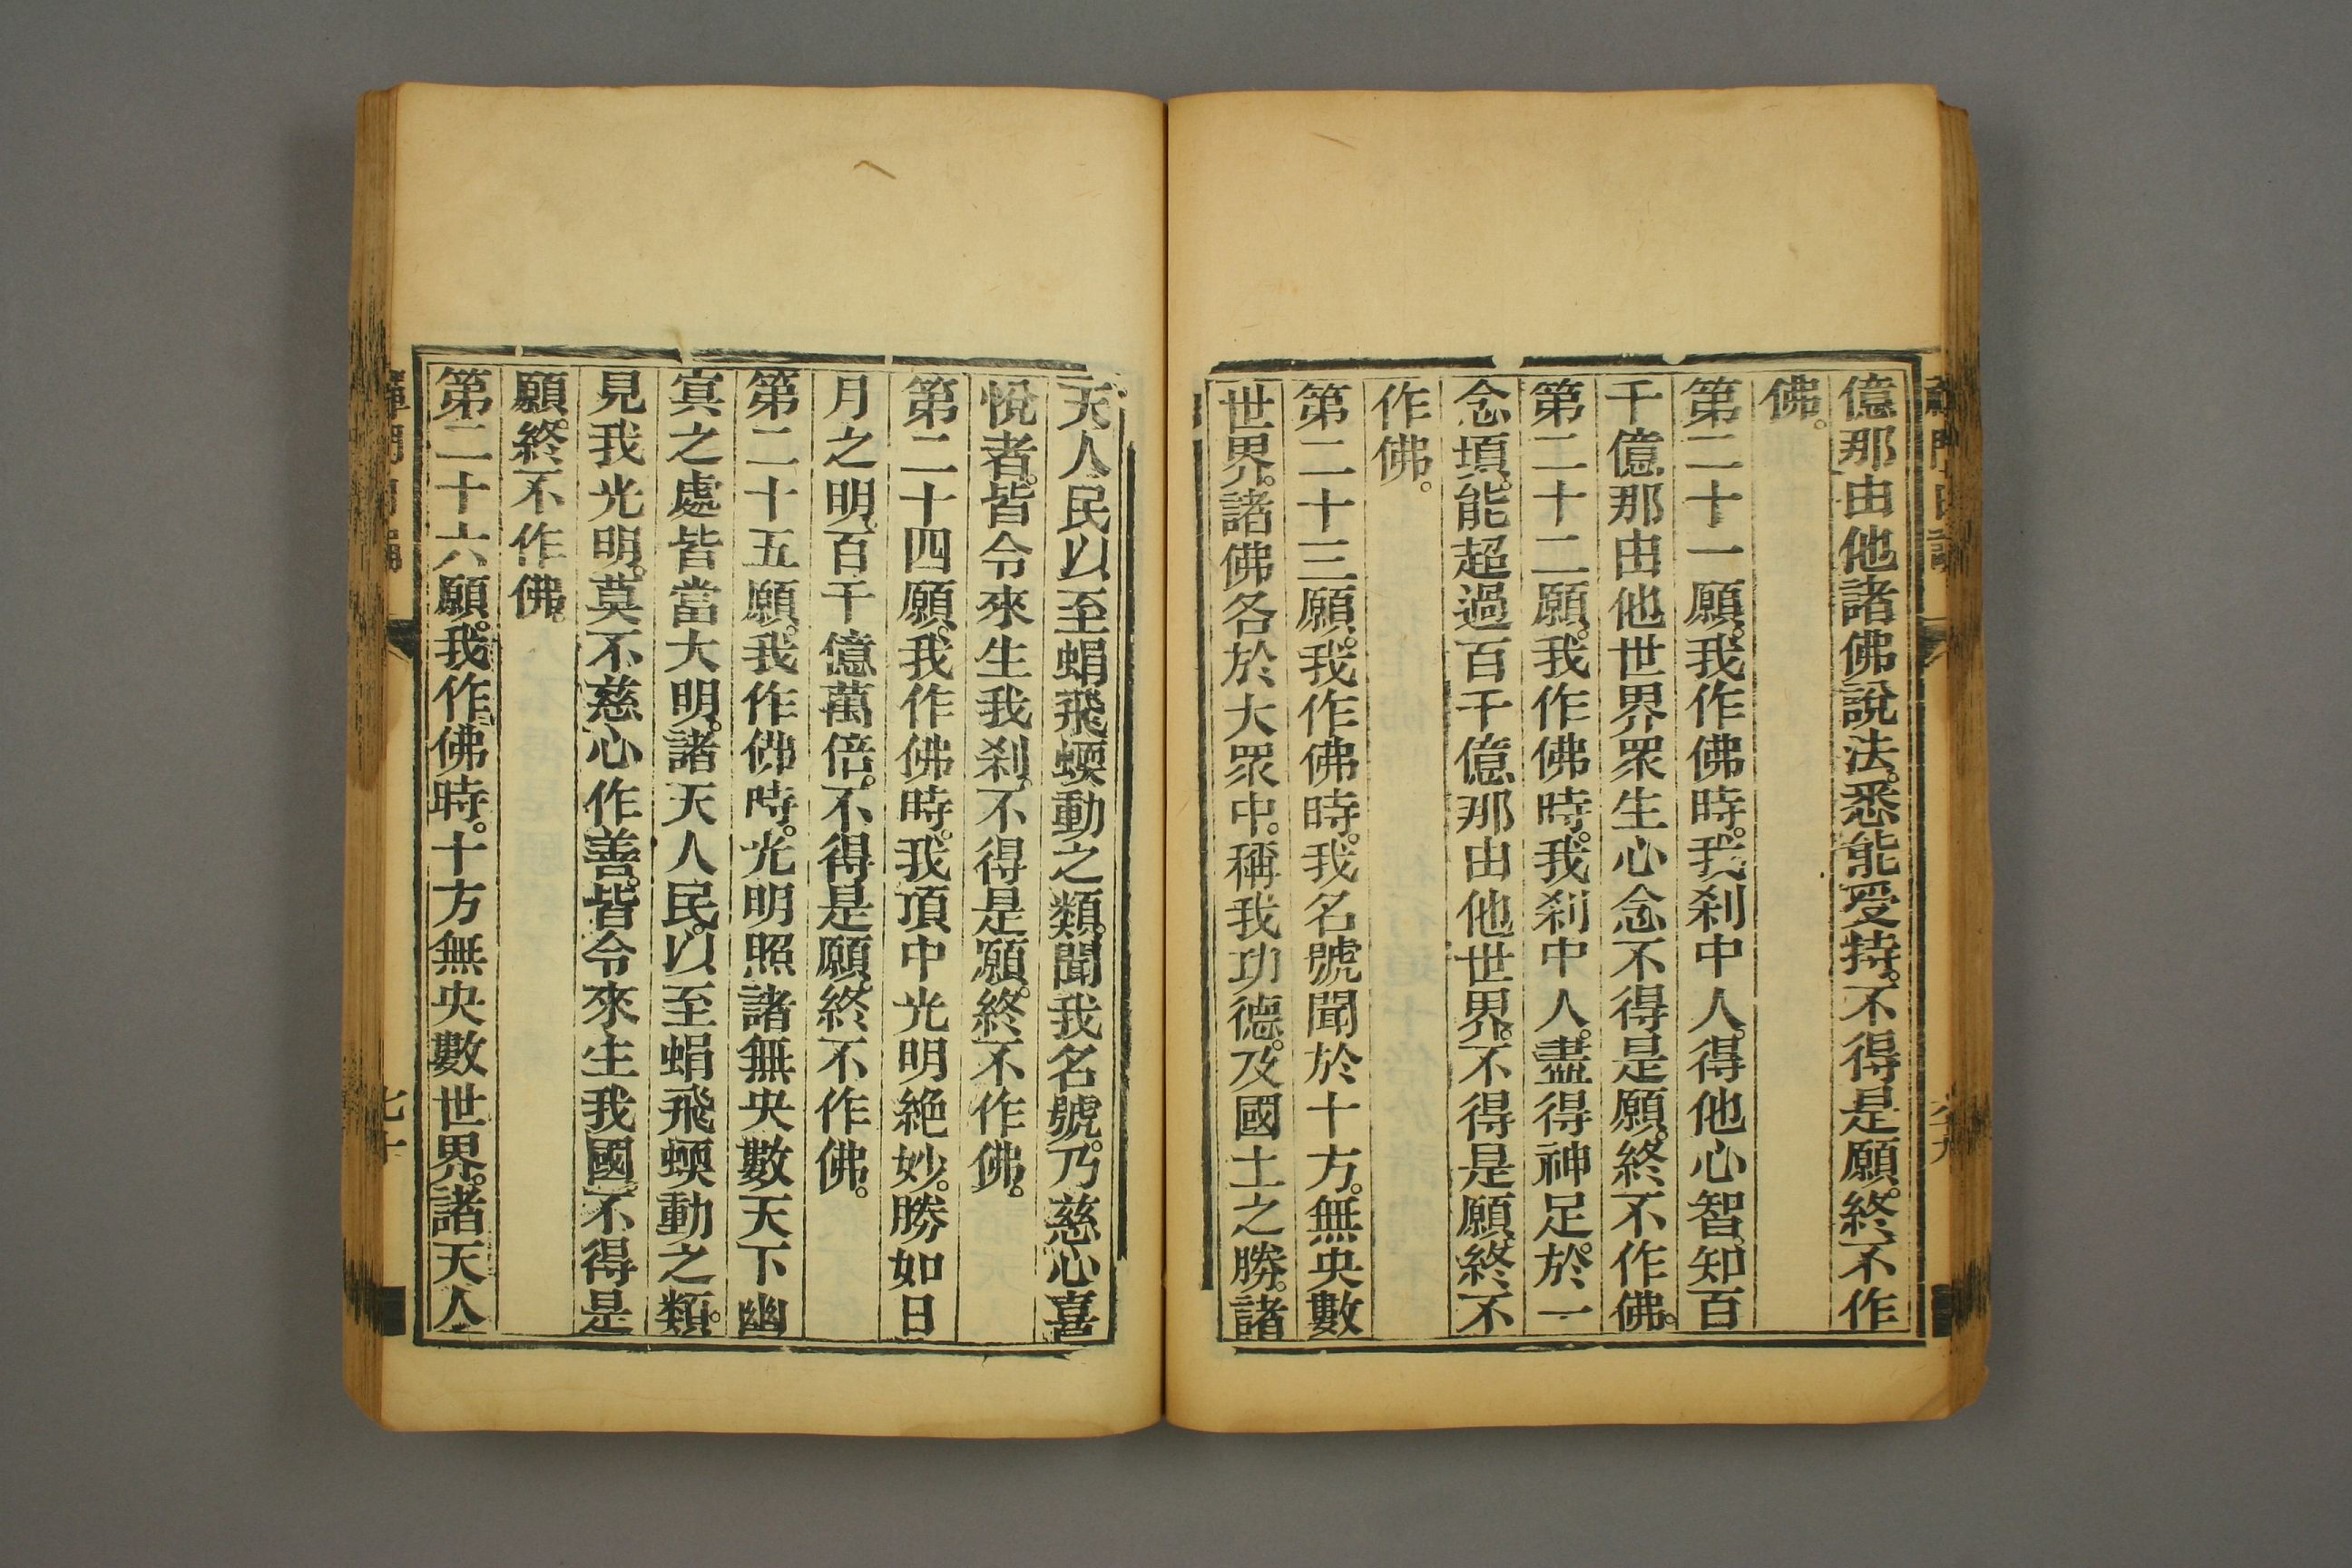 億那由他諸佛說法。悉能受持。不得是願。終不作
佛。
第二十一願。我作佛時。我刹中人。得他心智。知百
千億那由他世界眾生心念。不得是願。終不作佛。
第二十二願。我作佛時。我刹中人。盡得神足。於一
念頃。能超過百千億那由他世界。不得是願。終不
作佛。
第二十三願。我作佛時。我名號聞於十方。無央數
世界。諸佛各於大眾中。稱我功德。及國土之勝。諸
天人民以至蜎飛蝡動之類。聞我名號。乃慈心喜
悅者。皆令來生我刹。不得是願。終不作佛。
第二十四願。我作佛時。我頂中光明絕妙。勝如日
月之明。百千億萬倍。不得是願。終不作佛。
第二十五願。我作佛時。光明照諸無央數天下幽
寘之處皆當大明。諸天人民。以至蜎飛蝡動之類。
見我光明。莫不慈心作善。皆令來生我國。不得是
願。終不作佛。
第二十六願。我作佛時。十方無央數世界。諸天人
七十